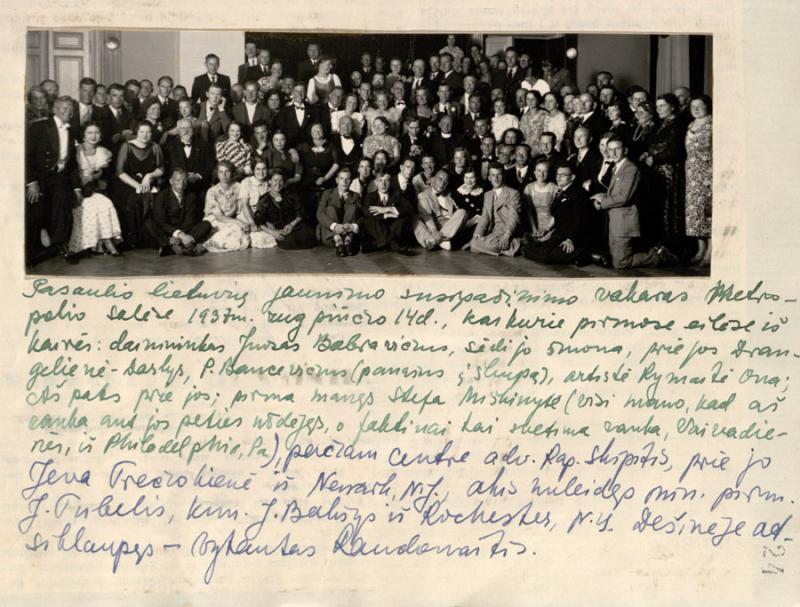 Pasaulio lietuvių jaunimo susipažinimo vakaras Metro-
polio salėse 1937m. rugpiučio 14d., kai kurie pirmose eilėse iš
kairės: dainininkas Juozas Babravičius, sėdi jo žmona, prie jos Dran-
gelienė-Darlys, P. Bancevičius (panašus į šliupą), artistė Rymaitė Ona;
Aš pats prie jos; pirma manęs Stefa Miškinytė (visi mano, kad aš
ranką ant jos peties uždėjęs, o faktinai tai svetima ranka, Vaivadie-
nės, iš Philadelphia, Pa), pačiam centre adv. Rap. Skipitis, prie jo
Jeva Trečiokienė iš Newark, N.J., akis nuleidęs min. pirm.
J. Tubelis, kun. J. Bakšys iš Rochester, N.Y. Dešinėje at-
siklaupęs – Vytautas Randonaitis.
24